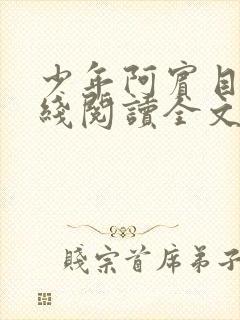 少年阿賓目
綫閱讀全文
賤宗首席弟子